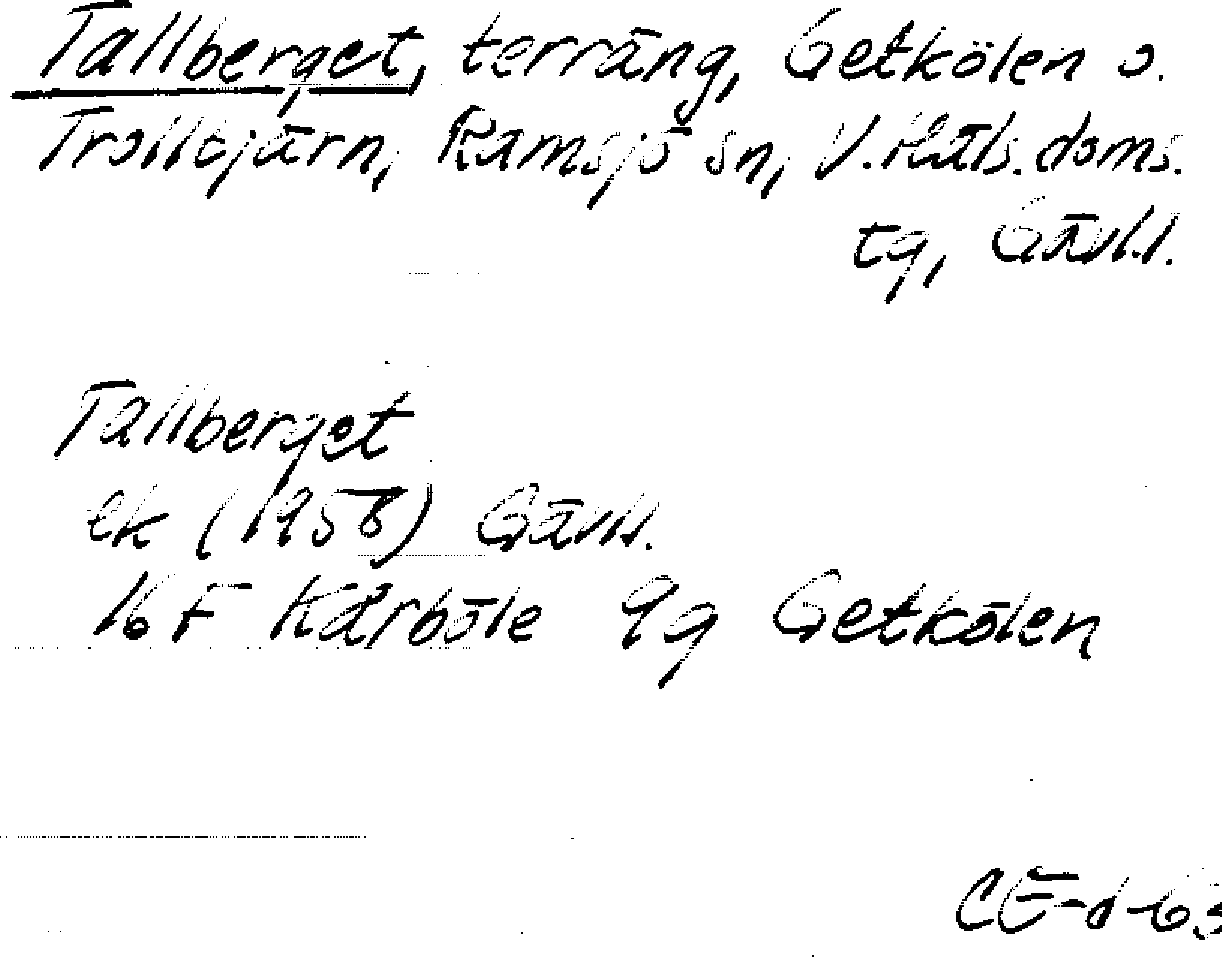 Tallberget, terräng, Getkölen o.
Trolltjärn, Ramsjö sn, V. Häls. doms.
tg, Gävl.l.
Tallberget
ek (1958) Gävl.l.
16F Kårböle 9g Getkölen
CE-d-63